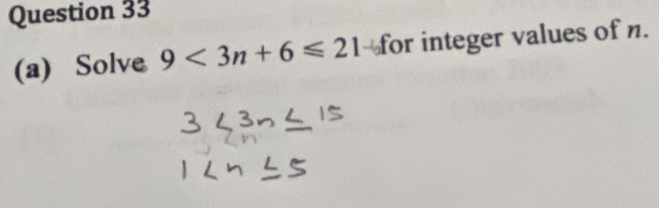 Question 33
(a) Solve 9 < 3n + 6 ⩽ 21 for integer values of n.
3 < 3n ≤ 15
1 < n ≤ 5